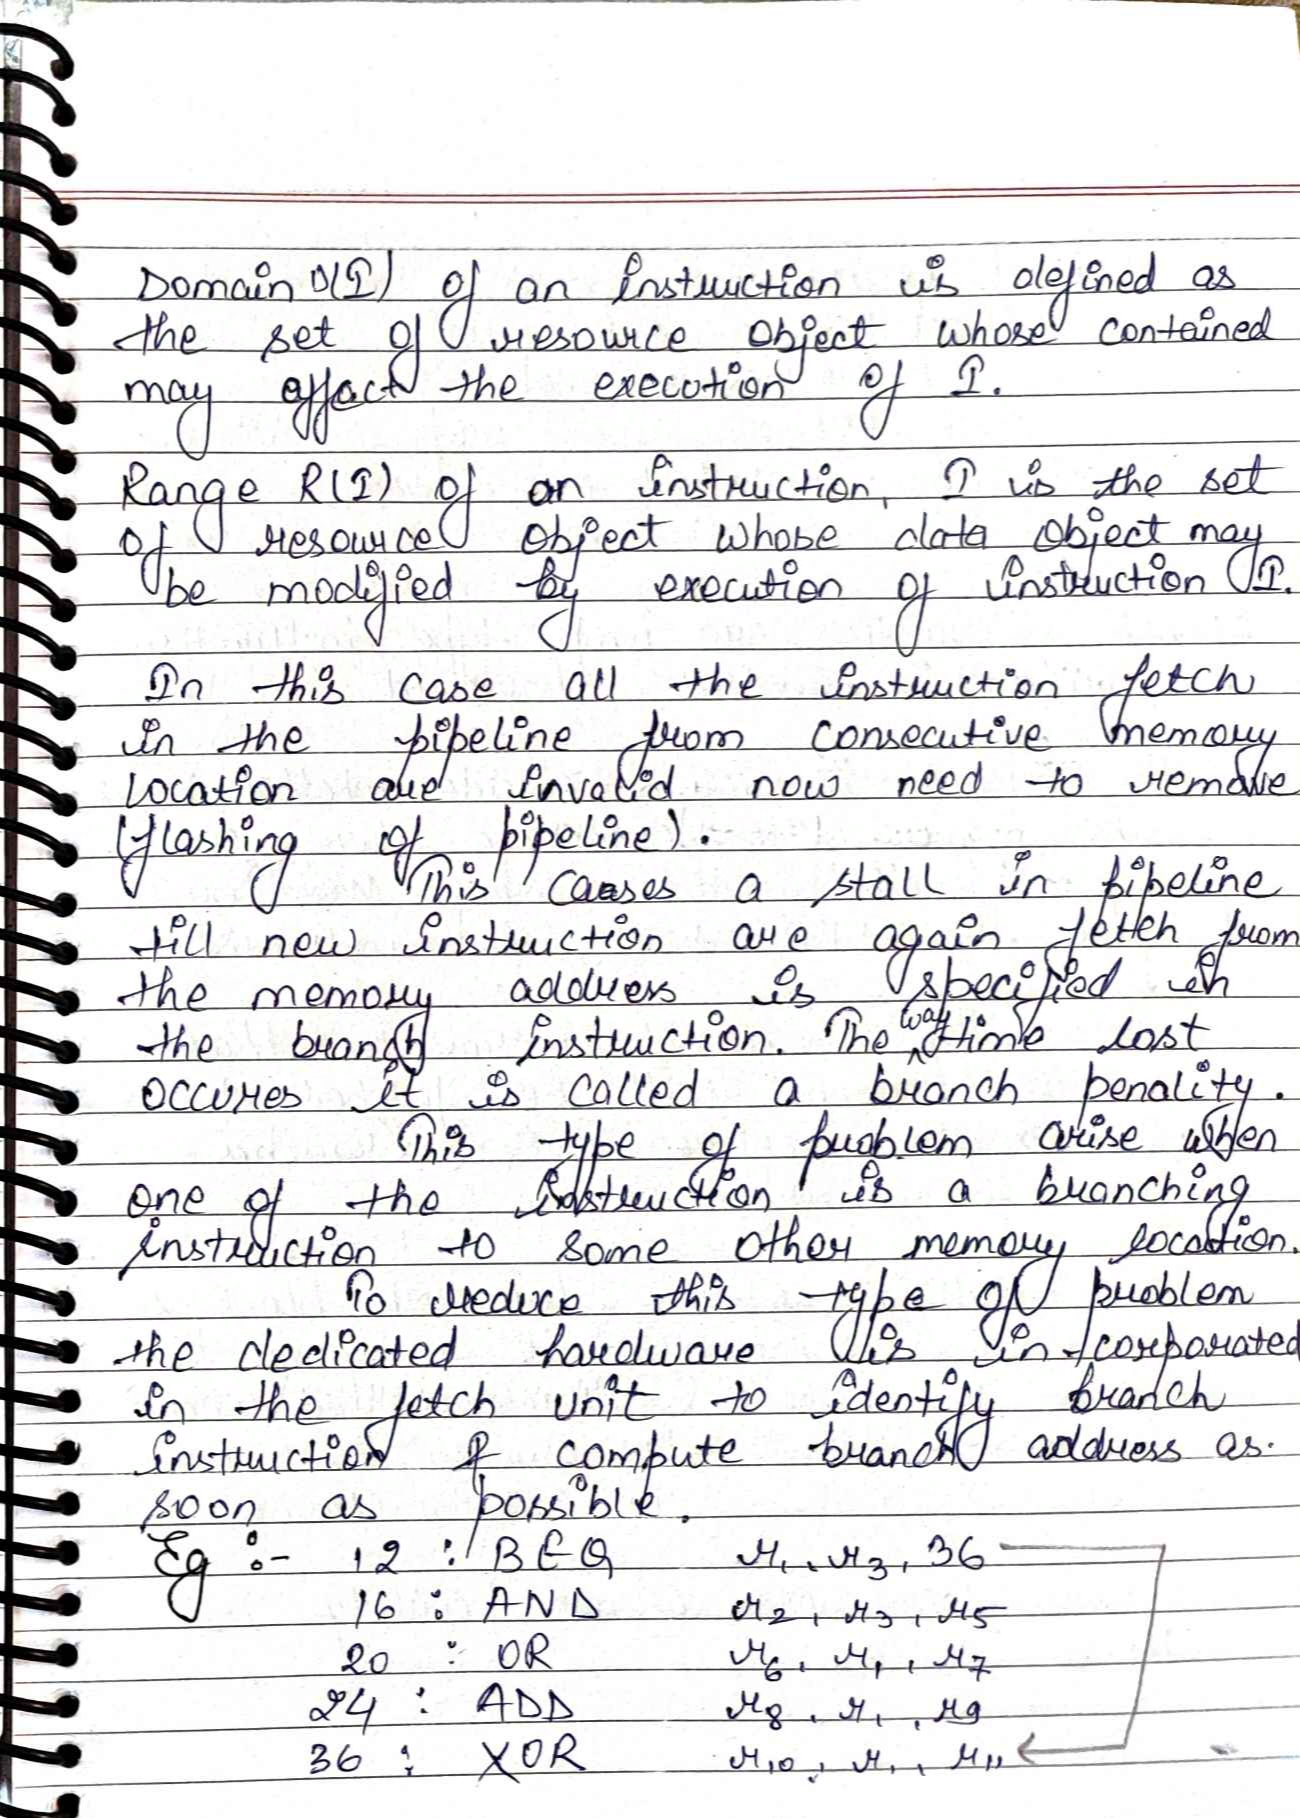 Domain D(I) of an instruction is defined as
the set of resource object whose contained
may affact the execution of I.
Range R(I) of an instruction, I is the set
of resource object whose data object may
be modified by execution of instruction I.
In this case all the instruction fetch
in the pipeline from consecutive memory
location are invalid now need to remove
(flashing of pipeline).
This causes a stall in pipeline
till new instruction are again fetch from
the memory address is specified in
the branch instruction. The way time lost
occures it is called a branch penality.
This type of problem arise when
one of the instruction is a branching
instruction to some other memory location.
To reduce this type of problem
the dedicated hardware is in corporated
in the fetch unit to identify branch
instruction & compute branch address as.
soon as possible.
Eg :- 12 : BEQ r1, r3, 36
16 : AND r2, r3, r5
20 : OR r6, r1, r7
24 : ADD r8, r1, r9
36 : XOR r10, r1, r11